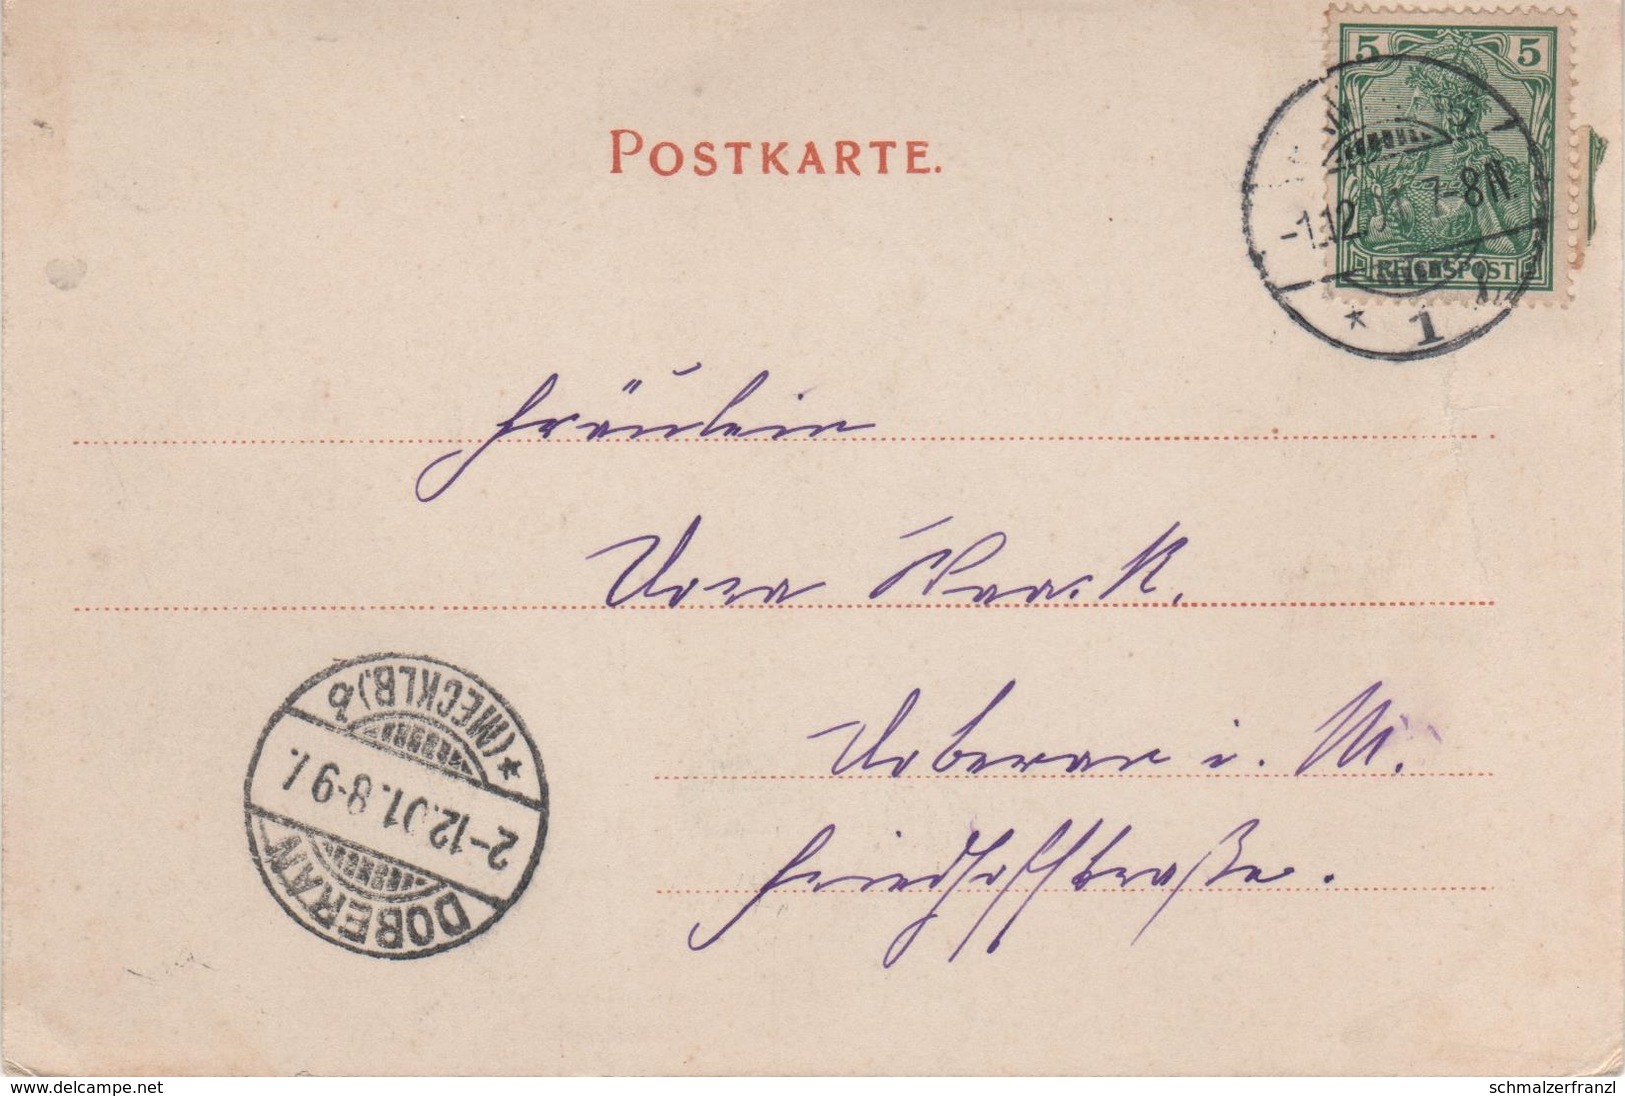 POSTKARTE.
5 5
REICHSPOST
-1.12.01. 7-8N.
* 1
Fräulein
Dora
Doberan i. M.
Friedhofstraße.
DOBERAN
2-12.01. 8-9
*(MECKLB) b
www.delcampe.net
schmalzerfranzl